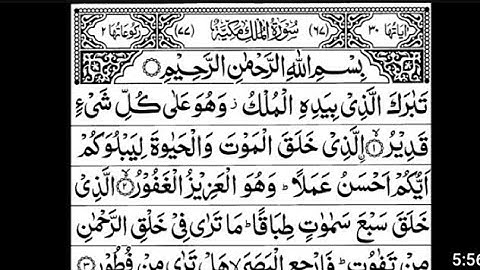 اٰیَاتُهَا ٣٠ (٦٧) سُوْرَةُ الْمُلْكِ مَكِّیَّةٌ (٧٧) رُكُوْعَاتُهَا ٢
بِسْمِ اللّٰهِ الرَّحْمٰنِ الرَّحِیْمِ
تَبٰرَكَ الَّذِیْ بِیَدِهِ الْمُلْكُ ز وَهُوَ عَلٰی كُلِّ شَیْءٍ
قَدِیْرُ ۙ﴿١﴾ اۨلَّذِیْ خَلَقَ الْمَوْتَ وَالْحَیٰوةَ لِیَبْلُوَكُمْ
اَیُّكُمْ اَحْسَنُ عَمَلًا ؕ وَهُوَ الْعَزِیْزُ الْغَفُوْرُ ۙ﴿٢﴾ الَّذِیْ
خَلَقَ سَبْعَ سَمٰوٰتٍ طِبَاقًا ؕ مَا تَرٰی فِیْ خَلْقِ الرَّحْمٰنِ
مِنْ تَفٰوُتٍ ؕ فَارْجِعِ الْبَصَرَ ۙ هَلْ تَرٰی مِنْ فُطُوْرٍ ﴿٣﴾
5:56